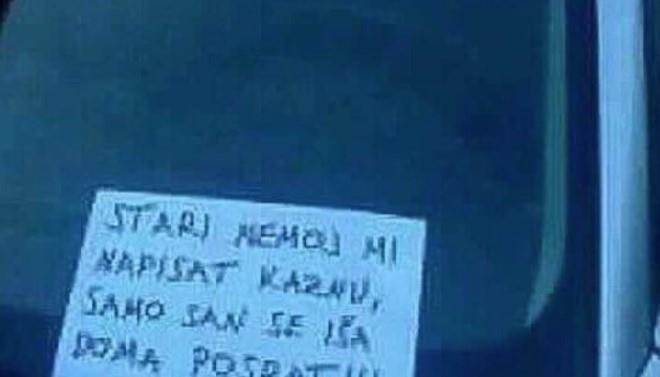 STARI NEMOJ MI
NAPISAT KAZNU,
SAMO SAN SE IŠA
DOMA POSRAT!!!